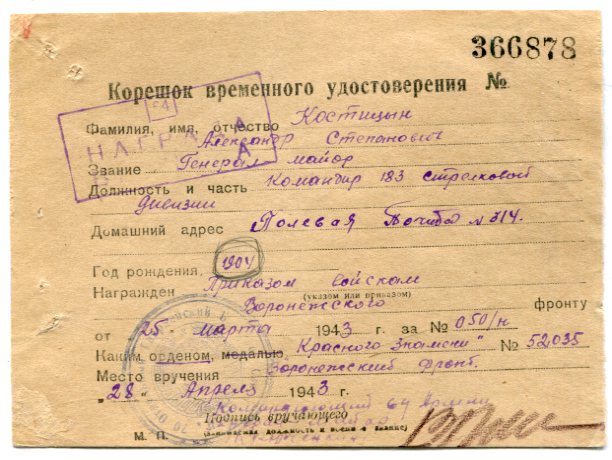 366878
Корешок временного удостоверения №
64
НАГРАДА
Фамилия, имя, отчество Костицын
Александр Степанович
Звание Генерал майор
Должность и часть Командир 183 стрелковой
дивизии
Домашний адрес Полевая Почта № 314.
Год рождения, 1904
Награжден Приказом Войскам
(указом или приказом)
Воронежского фронту
от 25 - марта 1943 г. за № 050/н
Каким орденом, медалью, Красного Знамени" № 52035
Место вручения Воронежский фронт.
"28" Апреля 1943 г.
Командующий 64 Армии
Подпись вручающего
М. П.